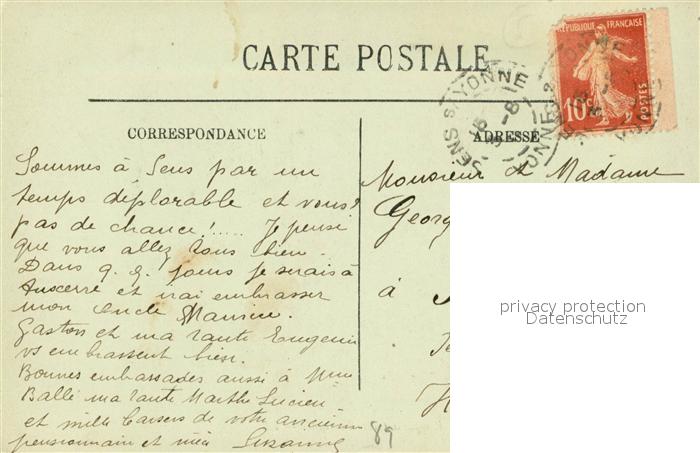 CARTE POSTALE
RÉPUBLIQUE FRANÇAISE
10c
POSTES
SENS S/YONNE
YONNE
CORRESPONDANCE
ADRESSE
Sommes à Sens par un
temps déplorable et vous?
pas de chance!..... Je pense
que vous allez tous bien.
Dans q.q. jours je serais à
Auxerre et irai embrasser
mon Oncle Maurice.
Gaston et ma tante Eugenie
vs embrassent bien.
Bonnes embrassades aussi à Mme
Balle ma tante Marthe Lucien
et mille baisers de votre ancienne
pensionnaire et Suzanne
89
Monsieur et Madame
Georg
à
privacy protection
Datenschutz